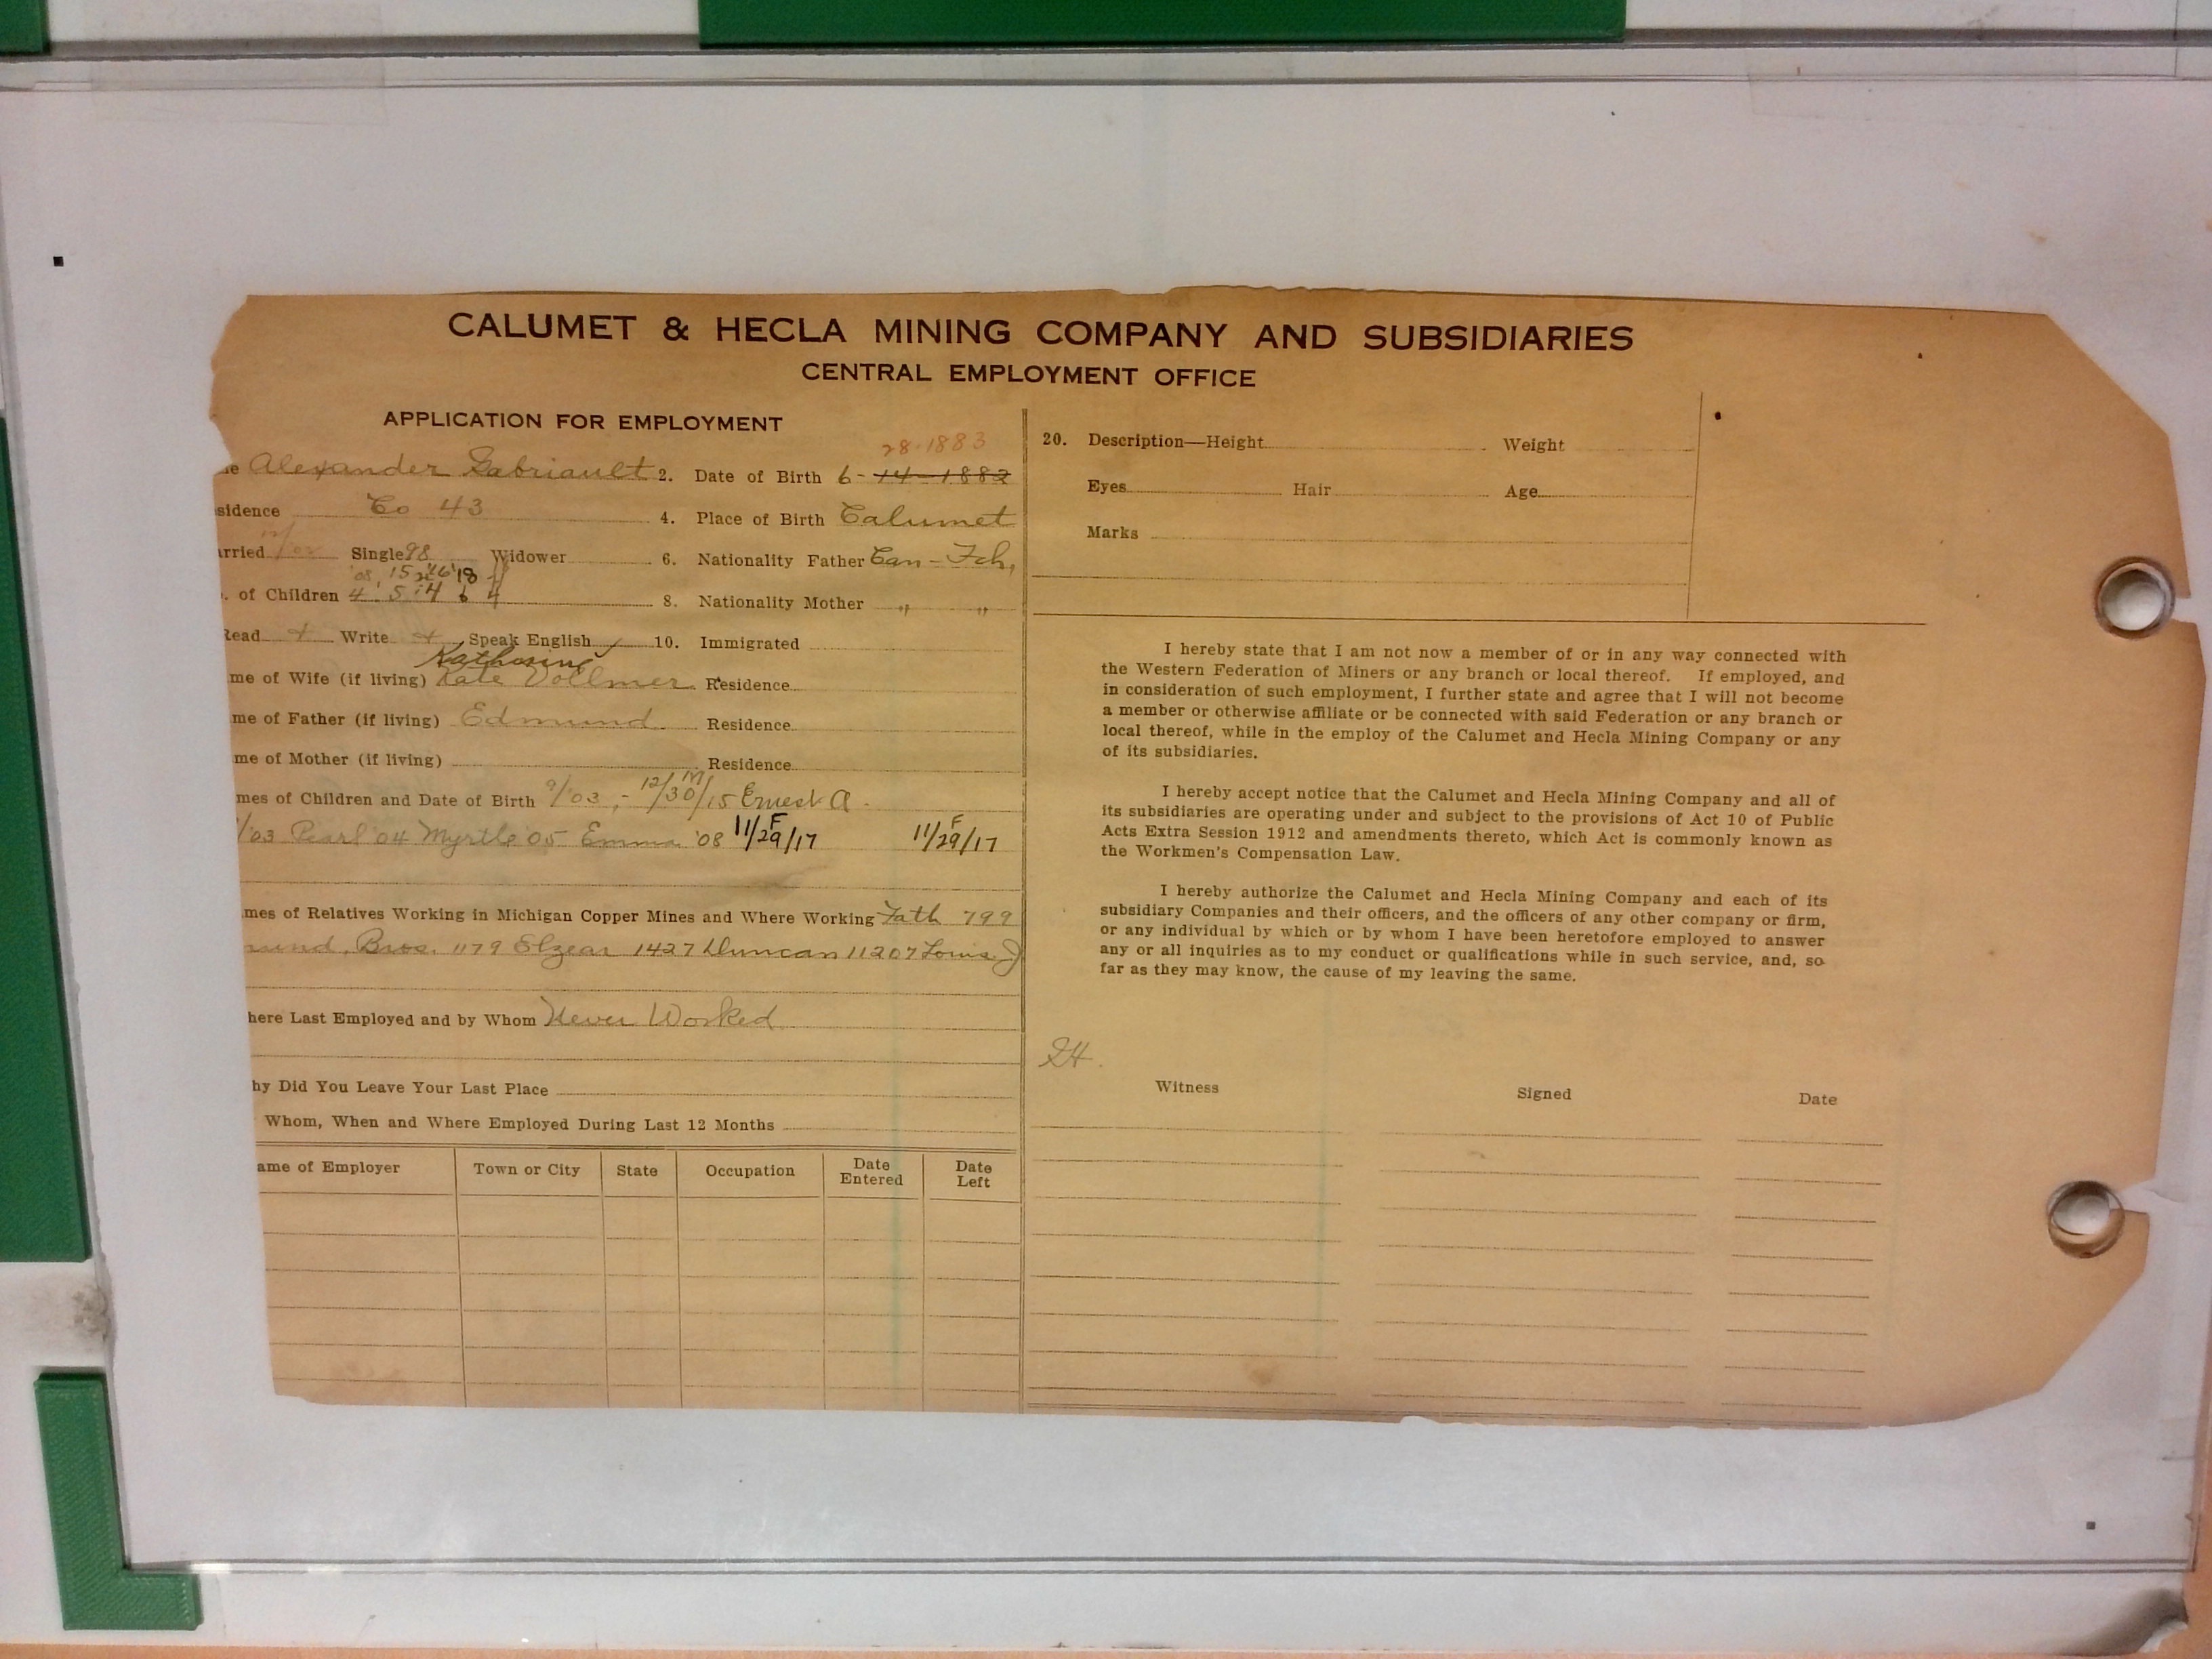 CALUMET & HECLA MINING COMPANY AND SUBSIDIARIES
CENTRAL EMPLOYMENT OFFICE
APPLICATION FOR EMPLOYMENT
28-1883
e Alexander Gabriault 2. Date of Birth 6-14-1882
sidence Co 43 4. Place of Birth Calumet
rried Single 98 Widower 6. Nationality Father Can-Fch,
'08, 15 '16 '18
. of Children 4 5 4 8. Nationality Mother " "
Read Write Speak English 10. Immigrated
Katherine
me of Wife (if living) Kate Vollmer Residence
me of Father (if living) Edmund Residence
me of Mother (if living) Residence
mes of Children and Date of Birth 9/'03, - 12/30/15 M Ernest A.
/'03 Pearl '04 Myrtle '05 Emma '08 11/29/17 F 11/29/17 F
mes of Relatives Working in Michigan Copper Mines and Where Working Fath 799
mund, Bros. 1179 Elzear 1427 Duncan 11207 Louis J
here Last Employed and by Whom Never Worked
hy Did You Leave Your Last Place
Whom, When and Where Employed During Last 12 Months
ame of Employer Town or City State Occupation Date Entered Date Left
20. Description—Height Weight
Eyes Hair Age
Marks
I hereby state that I am not now a member of or in any way connected with
the Western Federation of Miners or any branch or local thereof. If employed, and
in consideration of such employment, I further state and agree that I will not become
a member or otherwise affiliate or be connected with said Federation or any branch or
local thereof, while in the employ of the Calumet and Hecla Mining Company or any
of its subsidiaries.
I hereby accept notice that the Calumet and Hecla Mining Company and all of
its subsidiaries are operating under and subject to the provisions of Act 10 of Public
Acts Extra Session 1912 and amendments thereto, which Act is commonly known as
the Workmen's Compensation Law.
I hereby authorize the Calumet and Hecla Mining Company and each of its
subsidiary Companies and their officers, and the officers of any other company or firm,
or any individual by which or by whom I have been heretofore employed to answer
any or all inquiries as to my conduct or qualifications while in such service, and, so
far as they may know, the cause of my leaving the same.
24.
Witness Signed Date